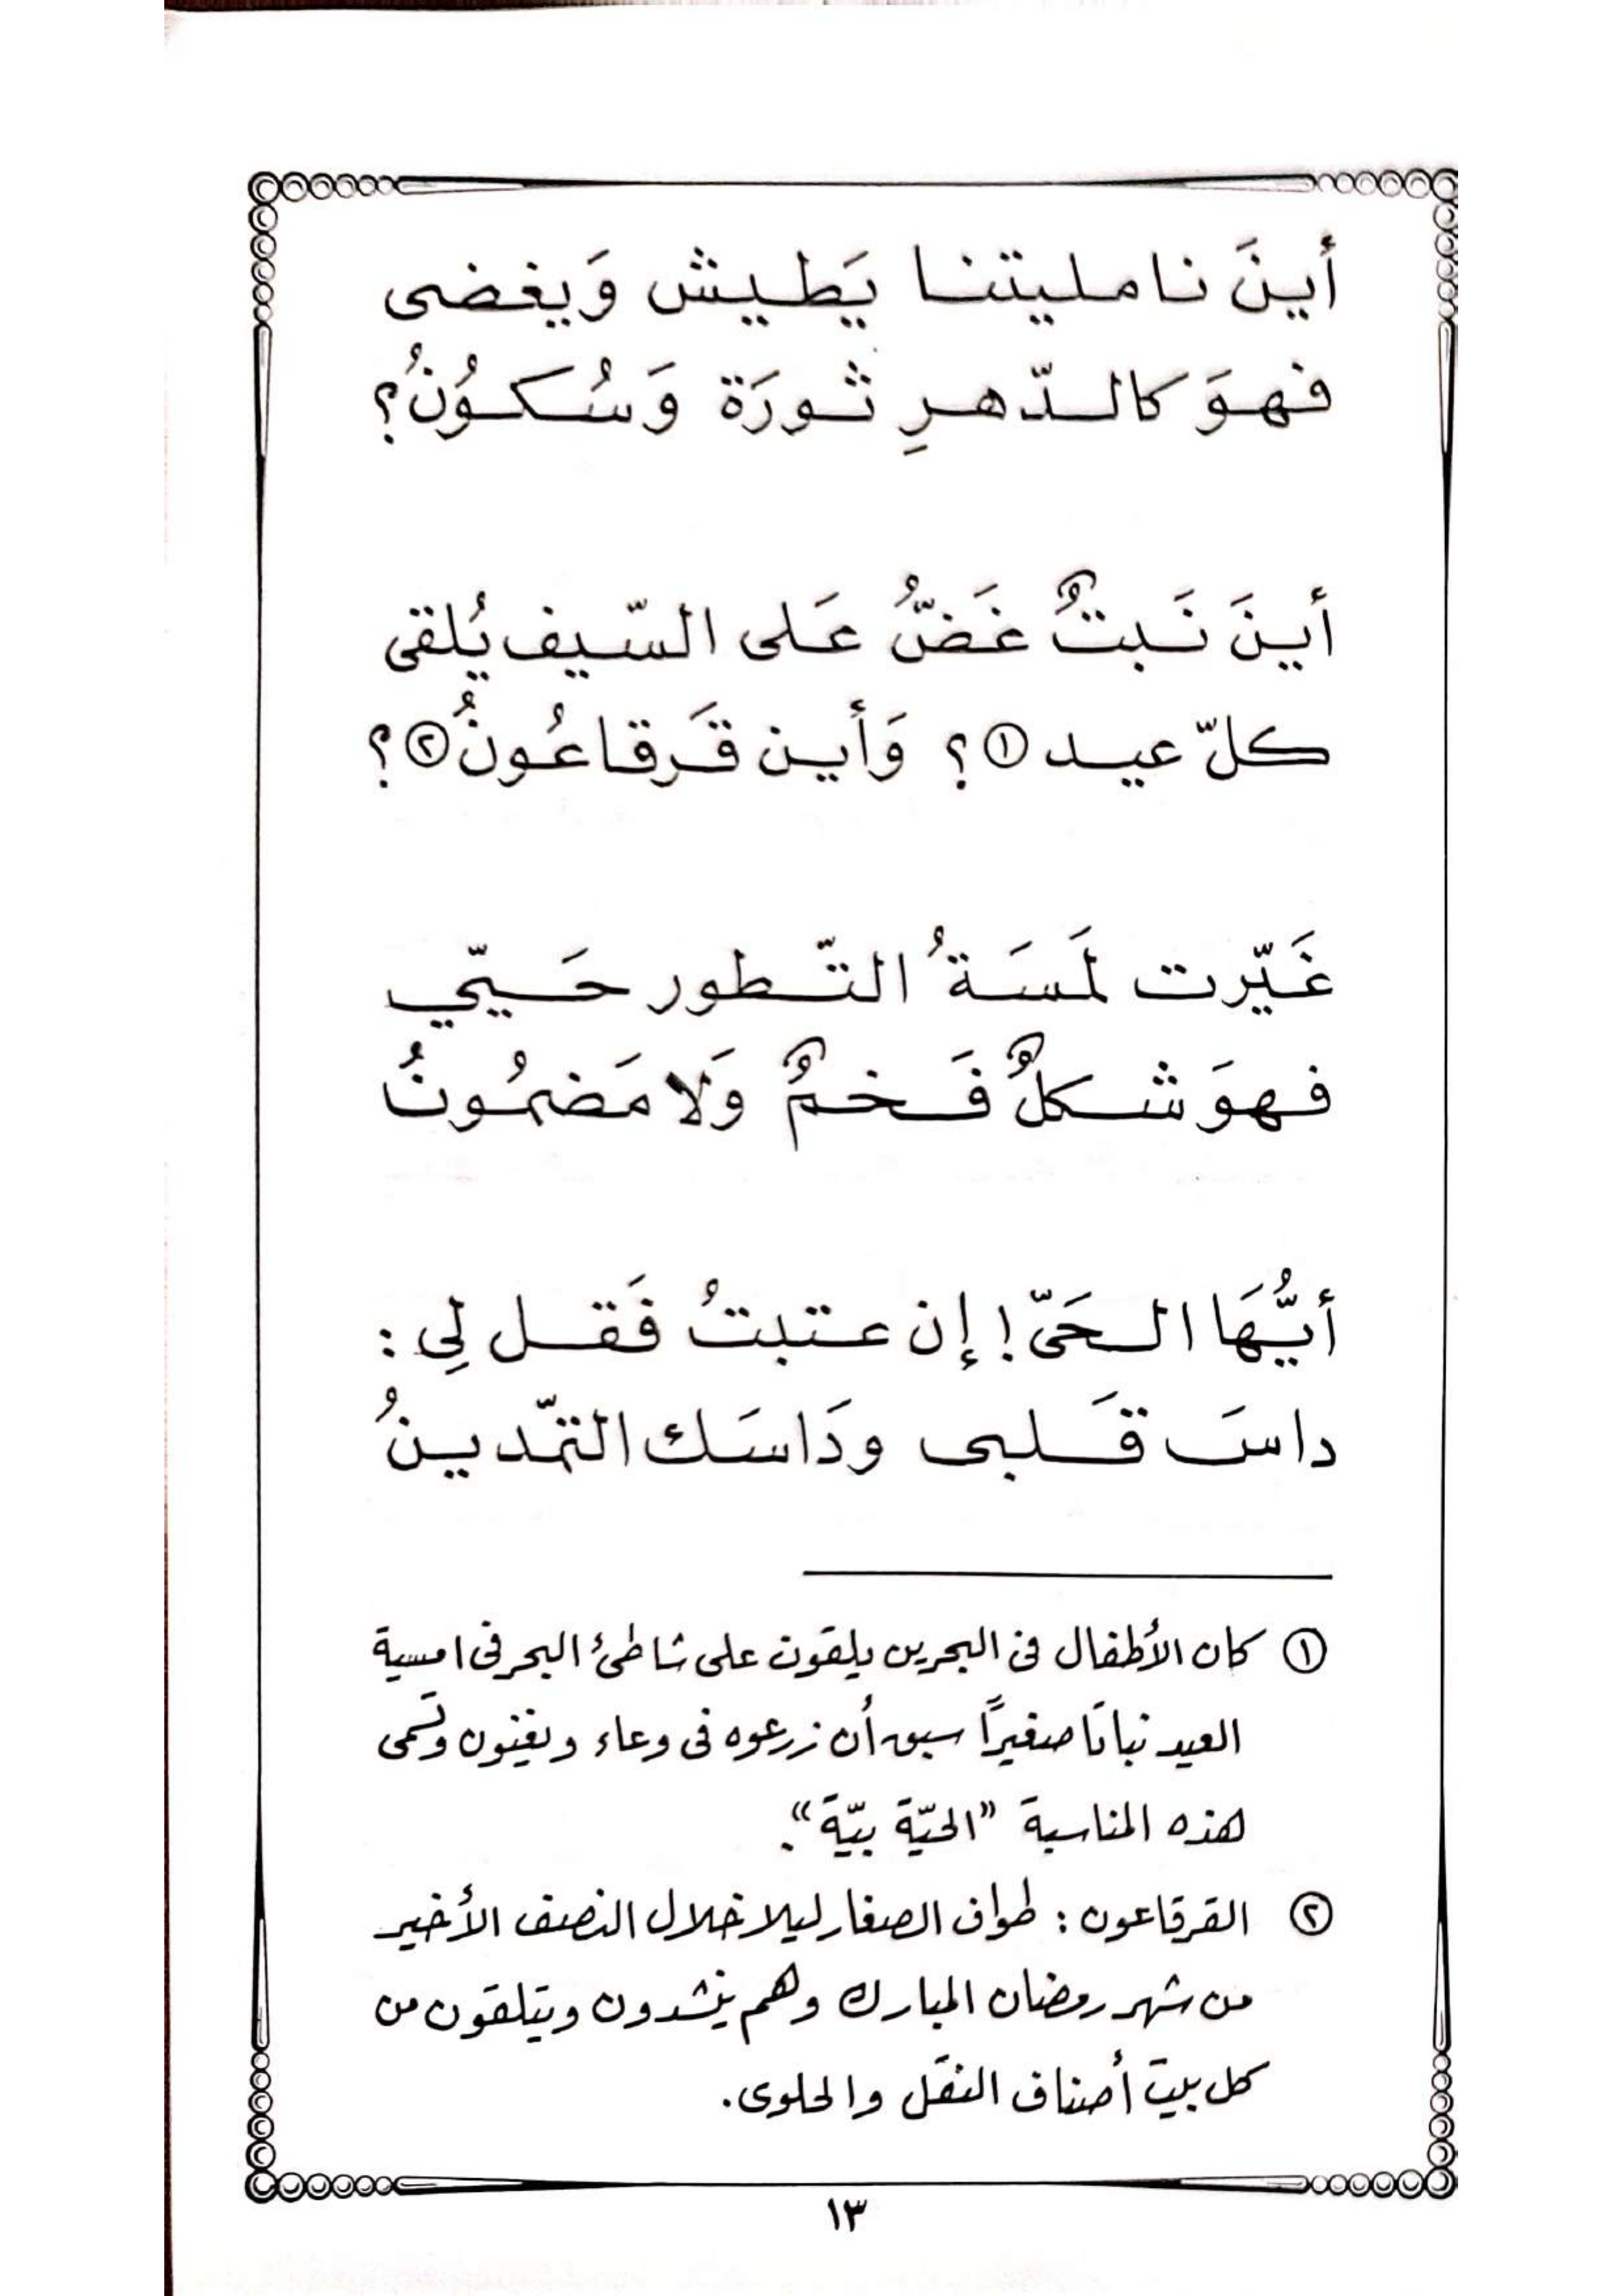 أينَ نامليتنا يَطيش وَيغضى
فهوَ كالدّهرِ ثورَة وَسُكوُنُ؟
أينَ نَبتٌ غَضُّ عَلى السّيف يُلقى
كلّ عيد ① ؟ وَأين قَرقاعُونُ ② ؟
غَيّرت لمَسَةُ التّطور حَيّي
فهوَ شكلٌ فَخمٌ وَلا مَضمُونُ
أيُّهَا الحَيّ! إن عتبتُ فَقل لِي :
داسَ قَلبى ودَاسَك التمّدينُ
① كان الأطفال فى البحرين يلقون على شاطئ البحر فى امسية
العيد نباتًا صغيرًا سبق أن زرعوه فى وعاء ويغنون وتَسمى
هذه المناسبة "الحيّة بيّة".
② القرقاعون : طواف الصغار ليلا خلال النصف الأخير
من شهر رمضان المبارك وهم ينشدون ويتلقون من
كل بيت أصناف النقل والحلوى.
١٣